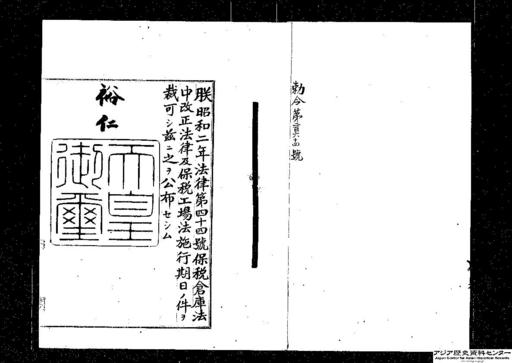 朕昭和二年法律第四十四號保税倉庫法
中改正法律及保税工場法施行期日ノ件ヲ
裁可シ茲ニ之ヲ公布セシム
裕仁
天皇
御璽
アジア歴史資料センター
Japan Center for Asian Historical Records